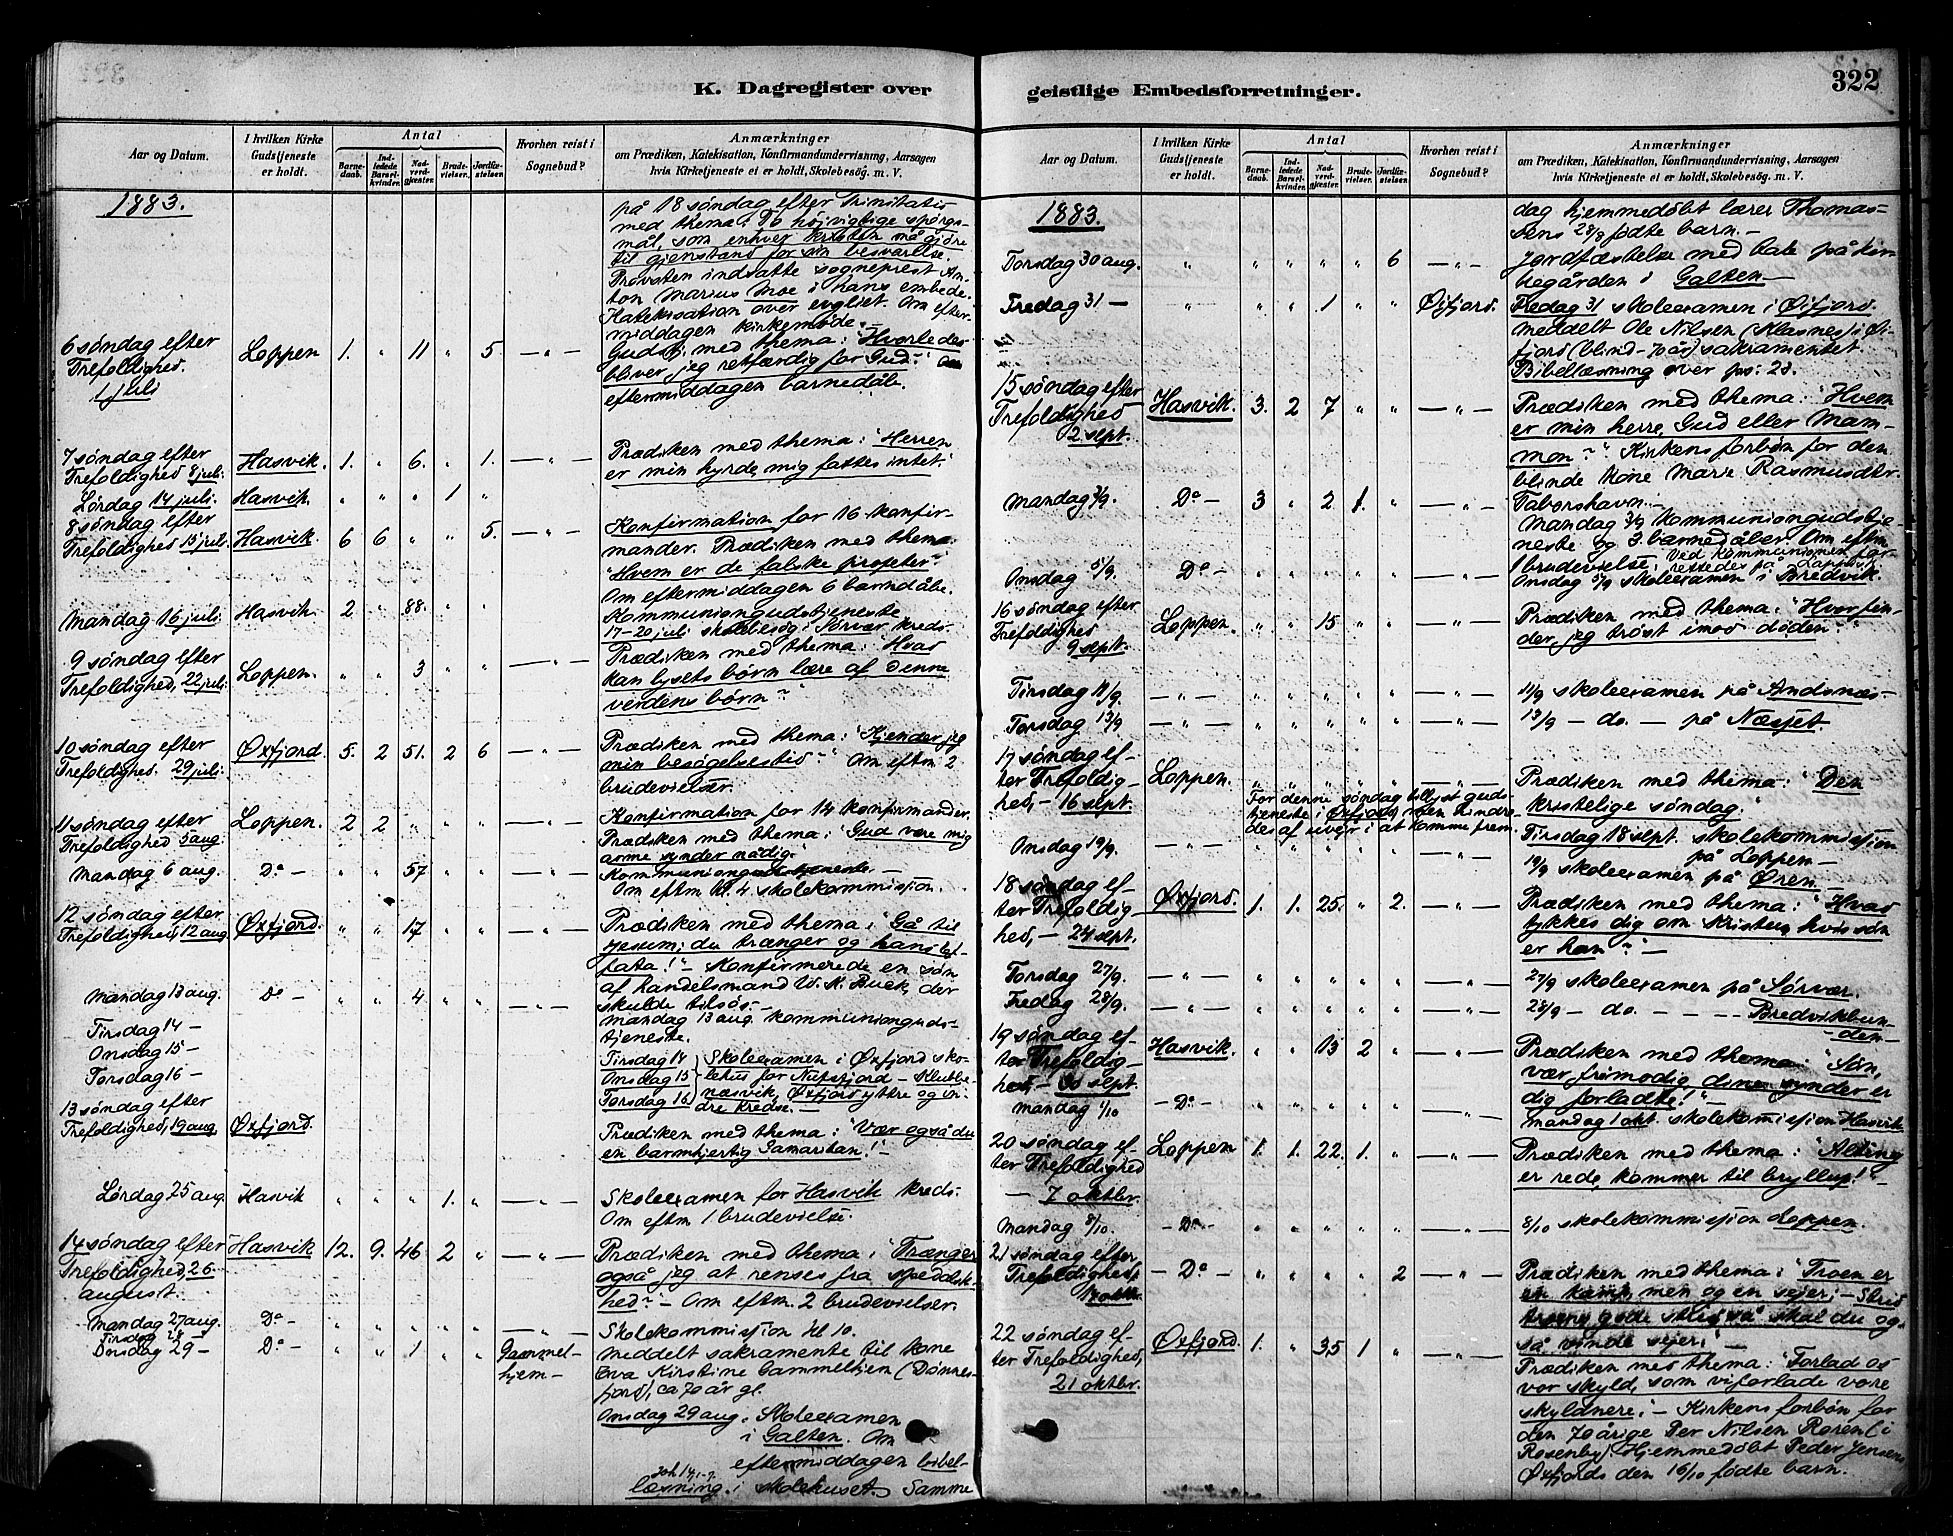 K. Dagregister over
Aar og Datum.
I hvilken Kirke Gudstjeneste er holdt.
Antal
Barnedaab.
Indledede Barselkvinder.
Nadverdgjester.
Brudevielser.
Jordfæstelser.
Hvorhen reist i Sognebud?
Anmærkninger
om Prædiken, Katekisation, Konfirmandundervisning, Aarsagen
hvis Kirketjeneste ei er holdt, Skolebesøg. m. V.
1883.
på 18 søndag efter Trinitatis
med thema: De højvigtige spørgs-
mål, som enhver kristen må gjøre
til gjenstand for sin besvarelse.
Provsten indsatte sogneprest An-
ton Marius Moe i hans embede.
Katekisation over evgliet. Om efter-
middagen kirkemøde.
6 søndag efter Trefoldighed. 1 juli Loppen 1. " 11 " 5. — " —
Gudstj. med thema: "Hvorledes
bliver jeg retfærdig for Gud?" Om
eftermiddagen barnedåb.
7 søndag efter Trefoldighed 8 juli. Hasvik. 1. " 6. " 1. — " —
Prædiken med thema: "Herren
er min hyrde, mig fattes intet."
Lørdag 14 juli. Hasvik. " " " 1 "
8 søndag efter Trefoldighed 15 juli. Hasvik. 6 6 " " 5. — " —
Konfirmation for 16 konfir-
mander. Prædiken med thema:
"Hvem er de falske profeter?"
Om eftermiddagen 6 barndåb.
Mandag 16 juli. Hasvik. 2 " 88. " "
Kommuniongudstjeneste
17–20 juli skolebesøg i Sørvær kreds.
9 søndag efter Trefoldighed, 22 juli. Loppen. " " 3 " " — " —
Prædiken med thema: "Hvad
kan lysets børn lære af denne
verdens børn?"
10 søndag efter Trefoldighed. 29 juli. Øxfjord. 5. 2 51. 2 6 — " —
Prædiken med thema: "Kjender jeg
min besøgelsestid?" Om eftm 2
brudevielser.
11 søndag efter Trefoldighed 5 aug. Loppen. 2 2 " " " — " —
Konfirmation for 14 konfirmander.
Prædiken med thema: "Gud være mig
arme synder nådig."
Mandag 6 aug. Do — " " 57 " " — " —
Kommuniongudstjeneste.
Om eftm kl. 4 skolekommission.
12 søndag efter Trefoldighed, 12 aug. Øxfjord. " " 17 " " — " —
Prædiken med thema: "Gå til
Jesum; du trænger og han
— Konfirmerede en søn
af handelsmand W. K. Buck, der
skulde tilsøs. —
Mandag 13 aug. Do — " " 4 " " — " —
Mandag 13 aug. kommunionguds-
tjeneste.
Tirsdag 14 —
Onsdag 15 —
Torsdag 16 —
Tirsdag 14 Skoleexamen i Øxfjord sko-
Onsdag 15 lehus for Nufsfjord — Klubbe-
Torsdag 16 næsvik, Øxfjord yttre og in-
dre kredse. —
13 søndag efter Trefoldighed, 19 aug. Øxfjord.
Prædiken med thema: "Vær også du
en barmhjertig Samaritan!" —
Lørdag 25 aug. Hasvik " " " 1. " — " —
Skoleexamen for Hasvik kreds.
Om eftm 1 brudevielse.
14 søndag efter Trefoldighed, 26 august. Hasvik 12. 9. 46 2 " — " —
Prædiken med thema: "Trænger
også jeg at renses fra spedalsk-
hed?" — Om eftm. 2 brudevielser.
Mandag 27 aug. Do — " " " " " — " —
Skolekommission kl 10.
Tirsdag 28 —
Onsdag 29 — Do — " " 1 " " Gammel-
hjem —
meddelt sakramente til kone
Eva Kirstine Gammelhjem (Dønnes-
fjord), ca 70 år gl.
Onsdag 29 aug. Skoleexamen
i Galten. Om
eftermiddagen bibel-
Joh 14,1-7.
læsning i skolehuset. Samme
geistlige Embedsforretninger.
322
Aar og Datum.
I hvilken Kirke Gudstjeneste er holdt.
Antal
Barnedaab.
Indledede Barselkvinder.
Nadverdgjester.
Brudevielser.
Jordfæstelser.
Hvorhen reist i Sognebud?
Anmærkninger
om Prædiken, Katekisation, Konfirmandundervisning, Aarsagen
hvis Kirketjeneste ei er holdt, Skolebesøg. m. V.
1883.
dag hjemmedøbt lærer Thomas-
sens 28/8 fødte barn. —
Torsdag 30 aug. " " " " " 6 — " —
Jordfæstelse med tale på kir-
kegården i Galten —
Fredag 31 — " " " 1 " " Øxfjord.
Fredag 31 skoleexamen i Øxfjord.
meddelt Ole Nilsen (Klasnes) i Øx-
fjord (blind – 70 år) sakramentet
Bibellæsning over ps: 23.
15 søndag efter Trefoldighed 2 sept. Hasvik. 3. 2 7 " " — " —
Prædiken med thema: "Hvem
er min herre, Gud eller Mam-
mon?" Kirkens forbøn for den
blinde kone Marie Rasmusdtr.
Taborshavn. —
Mandag 3/9. Do — 3 " 2 1. " — " —
Mandag 3/9 kommuniongudstje-
neste og 3 barnedåber. Om eftm
1 brudevielse. Ved kommunionen for-
rettedes på Lappisk.
Onsdag 5/9. Do — " " " " " — " —
Onsdag 5/9 skoleexamen i Bredvik.
16 søndag efter Trefoldighed 9 sept. Loppen. " " 15 " " — " —
Prædiken med thema: "Hvor fin-
der jeg trøst imod døden?"
Tirsdag 11/9 — " — " " " " " — " —
11/9 skoleexamen på Andsnæs —
Torsdag 13/9 — " — " " " " " — " —
13/9 — do. — på Næsset.
17 søndag ef-
ter Trefoldig-
hed, — 16 sept. Loppen. " " " " " — " —
Prædiken med thema: "Den
kristelige søndag."
For denne søndag tillyst guds-
tjeneste i Øxfjord, men hindre-
des af uveir i at komme frem.
Tirsdag 18 sept. skolekommission
på Loppen —
Onsdag 19/9. — " — " " " " " — " —
19/9 skoleexamen på Øren —
18 søndag ef-
ter Trefoldig-
hed, — 24 sept. Øxfjord. 1. 1. 25. " 2. — " —
Prædiken med thema: "Hvad
tykkes dig om Kristus, hvis søn
er han?" —
Torsdag 27/9. — " — " " " " " — " —
27/9 skoleexamen på Sørvær.
Fredag 28/9. — " — " " " " " — " —
28/9 — do. — — — — Bredvikbun-
den —
19 søndag ef-
ter Trefoldig-
hed, — 30 sept. Hasvik. " " 13 2 " — " —
Prædiken med thema: "Søn,
vær frimodig, dine synder er
dig forladte!" —
Mandag 1/10 — Do — " " " " " — " —
Mandag 1 okt. skolekommission Hasvik
20 søndag ef-
ter Trefoldighed
— 7 oktbr. Loppen 1. 1. 22. 1. " — " —
Prædiken med thema: "Alting
er rede, kommer til bryllup!" —
Mandag 8/10. — Do — " " " " " — " —
8/10 skolekommission Loppen.
21 søndag efter
Trefoldighed,
14 oktbr. — Do — " " " " 2 — " —
Prædiken med thema: "Troen er
en kamp, men og en sejer; — Strid
troens gode strid, så skal du og-
så vinde sejer." —
22 søndag ef-
ter Trefoldighed,
21 oktbr. Øxfjord. 1. " 35 1 " — " —
Prædiken med thema: "Forlad os
vor skyld, som vi forlade vore
skyldnere." — Kirkens forbøn for
den 70 årige Per Nilsen Rosen (i
Rosenby). Hjemmedøbt Peder Jensen
Øxfjords den 16/10 fødte barn.